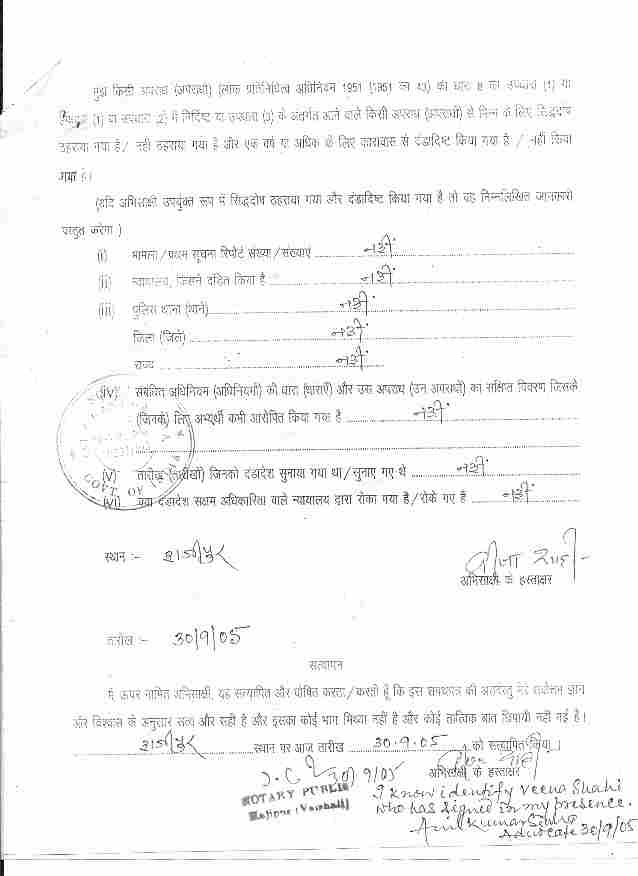 मुझे किसी अपराध (अपराधों) (लोक प्रतिनिधित्व अधिनियम 1951 (1951 का 43) की धारा 8 की उपधारा (1) या
उपधारा (1) या उपधारा (2) में निर्दिष्ट या उपधारा (3) के अंतर्गत आने वाले किसी अपराध (अपराधों) से भिन्न के लिए सिद्धदोष
ठहराया गया है / नहीं ठहराया गया है और एक वर्ष या अधिक के लिए कारावास से दंडादिष्ट किया गया है / नहीं किया
गया है।
(यदि अभिसाक्षी उपर्युक्त रूप में सिद्धदोष ठहराया गया और दंडादिष्ट किया गया है तो वह निम्नलिखित जानकारी
प्रस्तुत करेगा )
(i) मामला / प्रथम सूचना रिपोर्ट संख्या / संख्याएं नहीं
(ii) न्यायालय, जिसने दंडित किया है नहीं
(iii) पुलिस थाना (थाने) नहीं
जिला (जिले) नहीं
राज्य नहीं
(iv) संबंधित अधिनियम (अधिनियमों) की धारा (धाराएँ) और उस अपराध (उन अपराधों) का संक्षिप्त विवरण जिसके
(जिनके) लिए अभ्यर्थी कभी आरोपित किया गया है नहीं
(v) तारीख (तारीखों) जिनको दंडादेश सुनाया गया था / सुनाए गए थे नहीं
(vi) क्या दंडादेश सक्षम अधिकारिता वाले न्यायालय द्वारा रोका गया है / रोके गए है नहीं
GOVT. OF
स्थान :- हाजीपुर
वीणा शाही
अभिसाक्षी के हस्ताक्षर
तारीख :- 30/9/05
सत्यापन
मैं ऊपर नामित अभिसाक्षी, यह सत्यापित और घोषित करता / करती हूँ कि इस शपथपत्र की अंतवस्तु मेरे सर्वोत्तम ज्ञान
और विश्वास के अनुसार सत्य और सही है और इसका कोई भाग मिथ्या नहीं है और कोई तात्विक बात छिपायी नहीं गई है।
हाजीपुर स्थान पर आज तारीख 30.9.05 को सत्यापित किया।
अभिसाक्षी के हस्ताक्षर
30/9/05
NOTARY PUBLIC
Hajipur (Vaishali)
I know identify Veena Shahi
who has signed in my presence.
Anil Kumar
Advocate 30/9/05